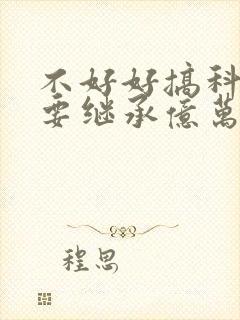 不好好搞科
要继承億萬
程思